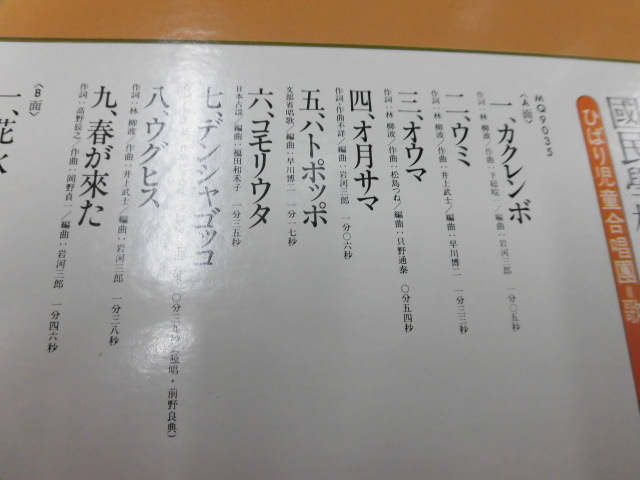 國民學
ひばり児童合唱團=歌
MQ9035
〈A面〉
一、カクレンボ
作詞:林 柳波/作曲:下総皖一/編曲:岩河三郎 一分〇五秒
二、ウミ
作詞:林 柳波/作曲:井上武士/編曲:早川博二 一分二三秒
三、オウマ
作詞:林 柳波/作曲:松島つね/編曲:只野通泰 〇分五四秒
四、オ月サマ
作詞・作曲不詳/編曲:岩河三郎 一分〇六秒
五、ハトポッポ
文部省唱歌/編曲:早川博二 一分一七秒
六、コモリウタ
日本古謡/編曲:福田和禾子 一分二五秒
七、デンシャゴッコ
〇分三九秒(独唱・前野良典)
八、ウグヒス
作詞:林 柳波/作曲:井上武士/編曲:岩河三郎 一分三八秒
九、春が來た
作詞:高野辰之/作曲:岡野貞一/編曲:岩河三郎 一分四六秒
〈B面〉
一、花火